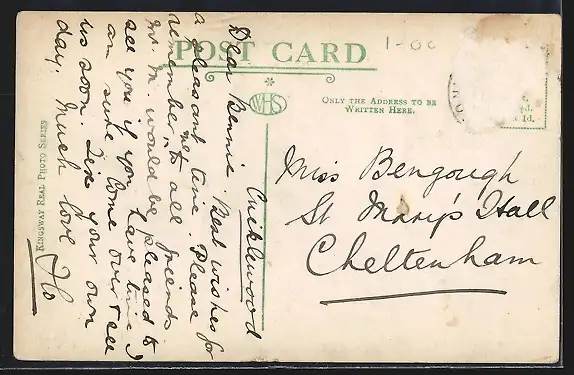 POST CARD
1-00
WHS
ONLY THE ADDRESS TO BE
WRITTEN HERE.
d.
1d.
KINGSWAY REAL PHOTO SERIES
Cricklewood
Dear Bennie. Best wishes for
a pleasant time. Please
remember me to all friends
Mr. M. would be pleased to
see you if you have time I
am sure. Come over & see
us soon. Fix your own
day. Much love Flo
Miss Bengough
St Mary's Hall
Cheltenham